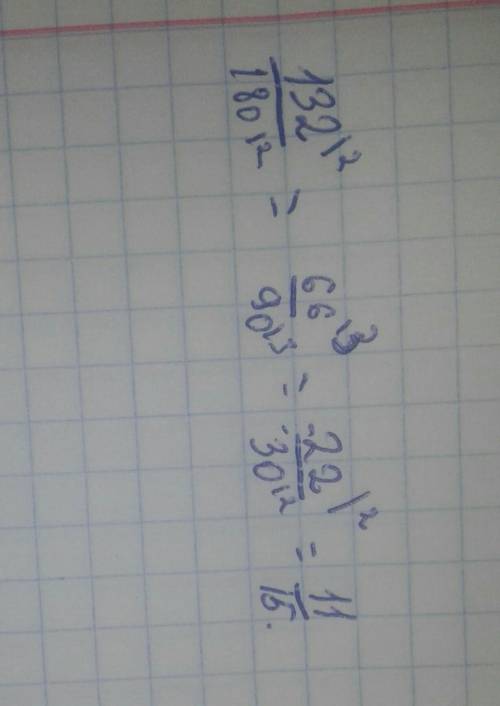 132\2 / 180\2 = 66\3 / 90\3 = 22\2 / 30\2 = 11 / 15.